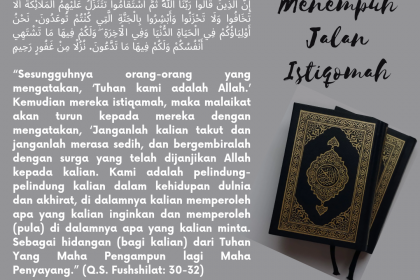 إِنَّ الَّذِينَ قَالُوا رَبُّنَا اللَّهُ ثُمَّ اسْتَقَامُوا تَتَنَزَّلُ عَلَيْهِمُ الْمَلَائِكَةُ أَلَّا
تَخَافُوا وَلَا تَحْزَنُوا وَأَبْشِرُوا بِالْجَنَّةِ الَّتِي كُنْتُمْ تُوعَدُونَ، نَحْنُ
أَوْلِيَاؤُكُمْ فِي الْحَيَاةِ الدُّنْيَا وَفِي الْآخِرَةِ ۖ وَلَكُمْ فِيهَا مَا تَشْتَهِي
أَنْفُسُكُمْ وَلَكُمْ فِيهَا مَا تَدَّعُونَ، نُزُلًا مِنْ غَفُورٍ رَحِيمٍ
“Sesungguhnya orang-orang yang
mengatakan, ‘Tuhan kami adalah Allah.’
Kemudian mereka istiqamah, maka malaikat
akan turun kepada mereka dengan
mengatakan, ‘Janganlah kalian takut dan
janganlah merasa sedih, dan bergembiralah
dengan surga yang telah dijanjikan Allah
kepada kalian. Kami adalah pelindung-
pelindung kalian dalam kehidupan dulnia
dan akhirat, di dalamnya kalian memperoleh
apa yang kalian inginkan dan memperoleh
(pula) di dalamnya apa yang kalian minta.
Sebagai hidangan (bagi kalian) dari Tuhan
Yang Maha Pengampun lagi Maha
Penyayang.” (Q.S. Fushshilat: 30-32)
Menempuh
Jalan
Istiqomah